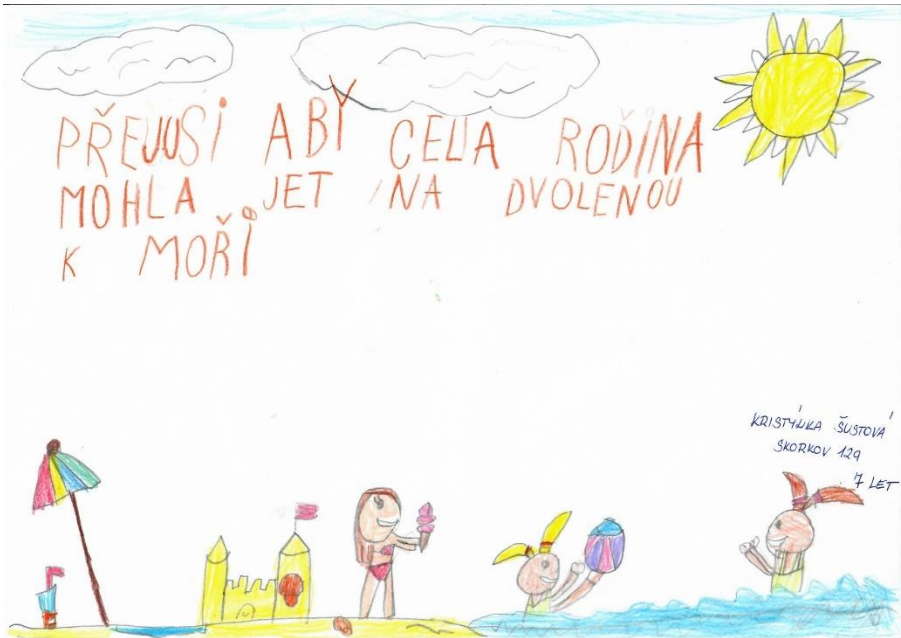 PŘEJUSI ABY CELIA ROĎINA
MOHLA JET NA DVOLENOU
K MOŘI
KRISTÝNKA ŠUSTOVÁ
SKORKOV 129
7 LET